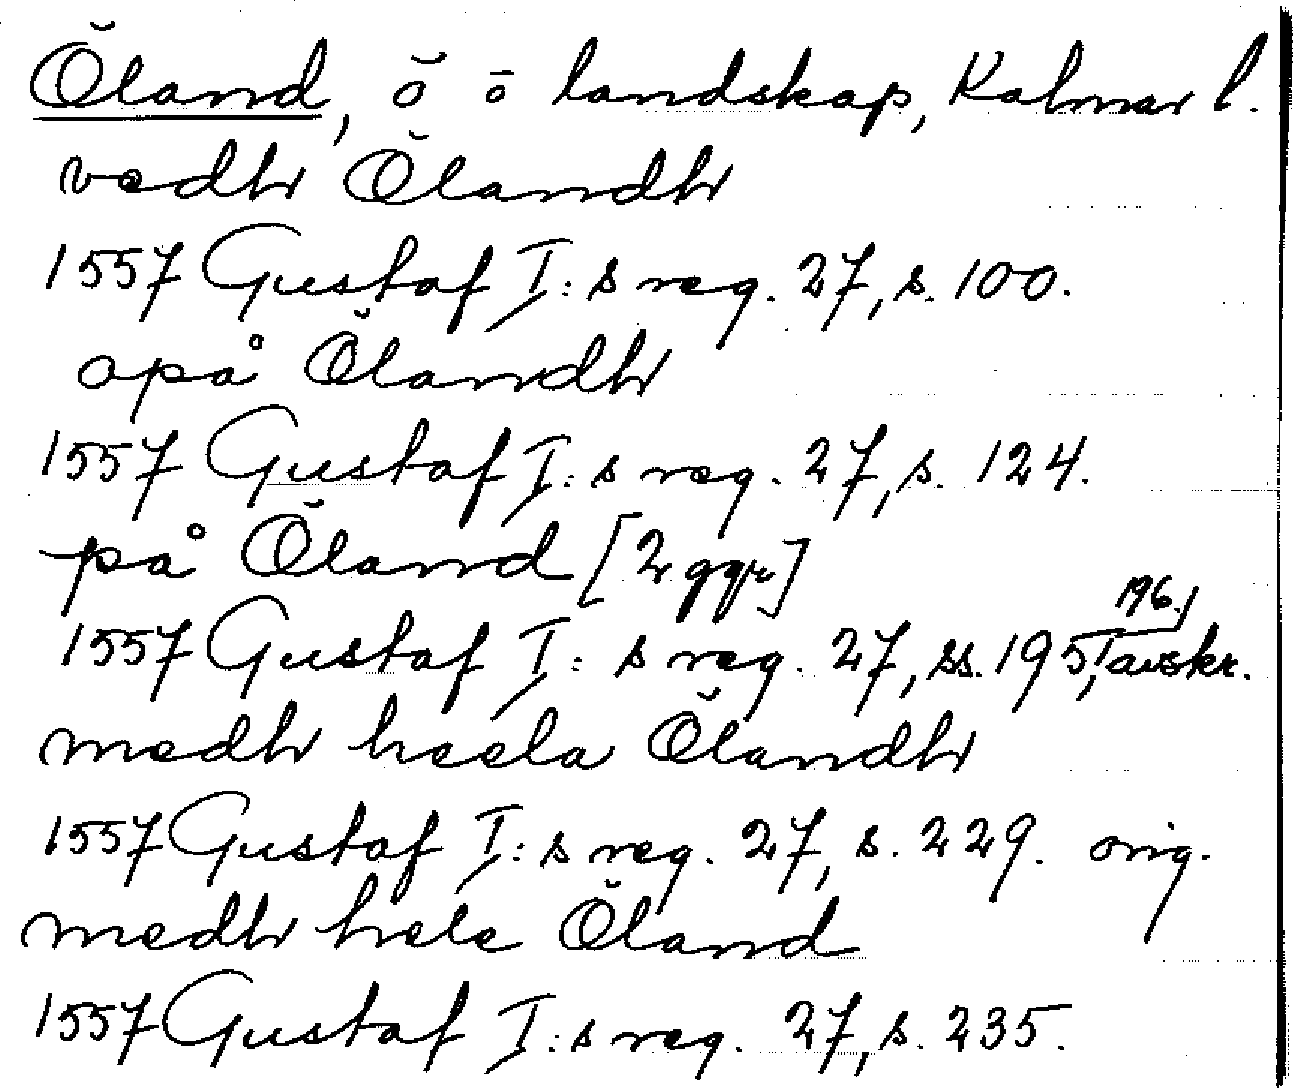 Öland, ö o landskap, Kalmar l.
vedh Ölandh
1557 Gustaf I:s reg. 27, s. 100.
opå Ölandh
1557 Gustaf I:s reg. 27, s. 124.
på Öland [2 ggr]
1557 Gustaf I:s reg. 27, ss. 195, 196, avskr.
medh heela Ölandh
1557 Gustaf I:s reg. 27, s. 229. orig.
medh hele Öland
1557 Gustaf I:s reg. 27, s. 235.